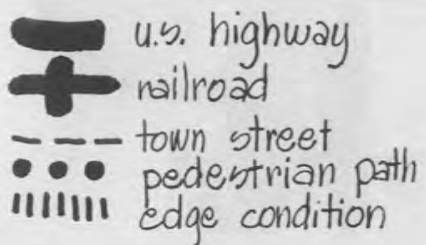 u.s. highway
railroad
town street
pedestrian path
edge condition